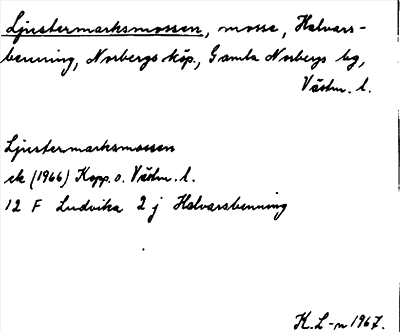 Ljustermarksmossen, mosse, Halvars-
benning, Norbergs köp., Gamla Norbergs bg,
Västm. l.
Ljustermarksmossen
ek (1966) Kopp. o. Västm. l.
12 F Ludvika 2 j Halvarsbenning
K. L-n 1967.